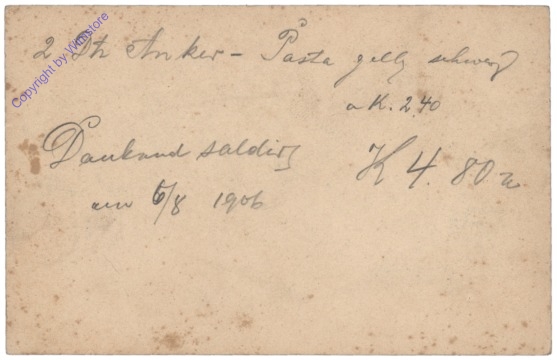 2 Dtz Anker - Pasta gelb schwarz
Copyright by Wihistore
a K. 2.40
Dankend saldirt K 4.80
am 6/8 1906